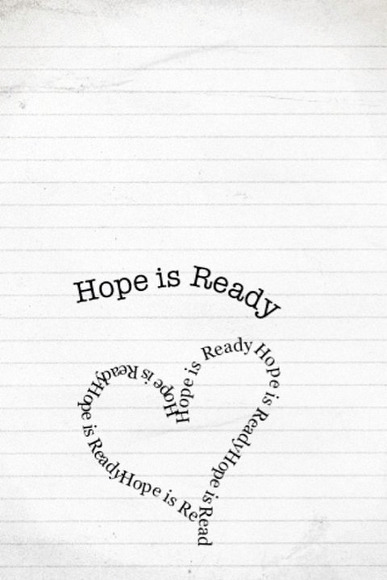 Hope is Ready
Hope is Ready Hope is ReadyHope is Read
Hope is ReadyHope is ReadyHope is Re